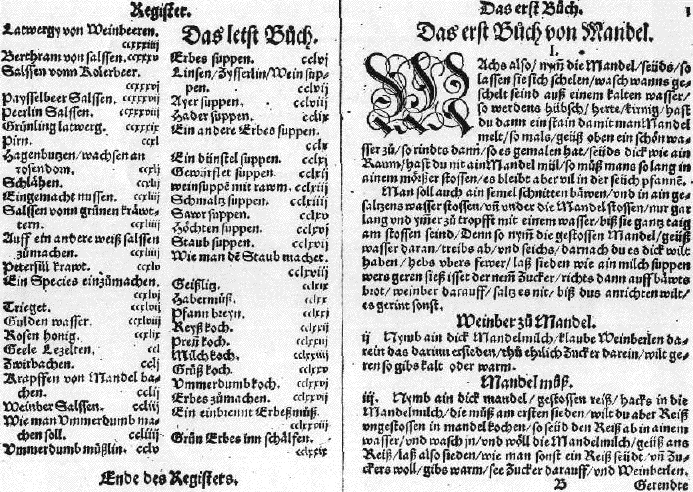 Register.
Latwergy von Weinbeeren.
ccxxxiij
Berchram von salssen. ccxxxv
Salssen vonn Kolerbeer.
ccxxxvj
Paysselbeer Salssen.
Peerlin Salssen.
Grünling latwerg. ccxxxix
Pirn. ccxl
Hagenbutzen/wachsen an
rosendorn. ccxlj
Schlåhen. ccxlij
Eingemacht nussen. ccxliij
Salssen vonn grünen kråwt-
tern. ccxliiij
Auff ein andere weiß salssen
zůmachen.
Petersill krawt. ccxlv
Ein Species einzůmachen.
ccxlvj
Trieget. ccxlvij
Gulden wasser. ccxlviij
Rosen honig. ccxlix
Geele Lezelten. ccl
Zwirbachen. cclj
Krapffen von Mandel ba-
chen. cclij
Weinber Salssen. ccliij
Wie man Vmmerdumb ma-
chen soll. ccliiij
Vmmerdumb můßlin. cclv
Das letst Bůch.
Erbes suppen. cclvj
Linsen/Zysserlin/Wein sup-
pen. cclvij
Ayer suppen. cclviij
Hader suppen.
Ein andere Erbes suppen.
cclx
Ein dünstel suppen. cclxj
Gewürtzlet suppen. cclxij
weinsuppē mit rawm. cclxiij
Schmaltz suppen. cclxiiij
Sawr suppen. cclxv
Höchten suppen. cclxvj
Staub suppen. cclxvij
Wie man dē Staub machet.
cclxviij
Geißlitz. cclxix
Habermůß. cclxx
Pfann breyn. cclxxj
Reyß koch. cclxxij
Preñ koch. cclxxiij
Milch koch. cclxxiiij
Grüß koch. cclxxv
Vmmerdumb koch. cclxxvj
Erbes zůmachen. cclxxvij
Ein einbrennt Erbeßmůß.
cclxxviij
Grün Erbes inn schälfen.
cclxxix
Ende des Registers.
Das erst Bůch. 1
Das erst Bůch von Mandel.
I.
WAchs also/ nym̃ die Mandel/seüds/so
lassen sie sich schelen/wasch wanns ge-
schelt seind auß einem kalten wasser/
so werdens hübsch/ herte/kirnig/hast
du dann ein stain damit man Mandel
melt/so mals/geüß oben ein schön was-
ser zů/so rindts dann/so es gemalen hat/seüds dick wie ain
Rawm/hast du nit ain Mandel mül/so můß mans so lang in
ainem mörser stossen/es bleibt aber vil in der seich pfanne.
Man soll auch ain semel schnitten båwen/vnd in ain ge-
saltzens wasser stossen/vñ vnder die Mandel stossen/nur gar
lang vnd ymer zů tropfft mit einem wasser/biß sie gantz taig
am stossen seind/ Denn so nym̃ die gestossen Mandel/geüß
wasser daran/treibs ab/vnd seichs/darnach du es dick wilt
haben/ hebs vbers fewer/laß sieden wie ain milch suppen
wers geren sieß isset der nem̃ Zucker/richts dann auff båwts
brot/weinber darauff/saltz es nit/biß dus anrichten wilt/
es gerint sonst.
Weinber zů Mandel.
ij Nymb ain dick Mandelmilch/klaube Weinberlen da-
rein das darinn ersieden/thů ehrlich Zucker darein/wilt ge-
ren so gibs kalt oder warm.
Mandel můß.
iij. Nymb ain dick mandel/ gestossen reiß/ hacks in die
Mandelmilch/die můß am ersten sieden/wilt du aber Reiß
vngestossen in mandel kochen/so seüd den Reiß ab in ainem
wasser/vnd wasch jn/vnd wöll die Mandelmilch/geüß ans
Reiß/laß also sieden/wie man sonst ein Reiß seüdt/vñ Zu-
ckers woll/gibs warm/see Zucker darauff/vnd Weinberlen.
B Gerendte